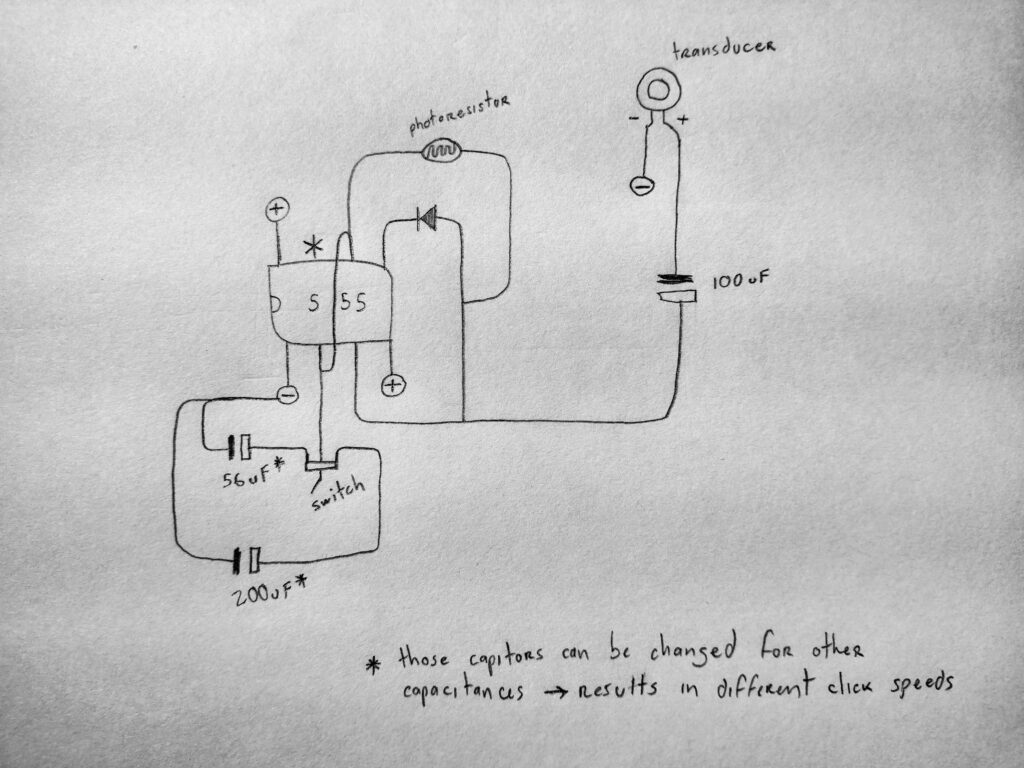 transducer
photoresistor
- +
−
+
*
5 55
100uF
+
−
56uF*
switch
200uF*
* those capitors can be changed for other
capacitances → results in different click speeds